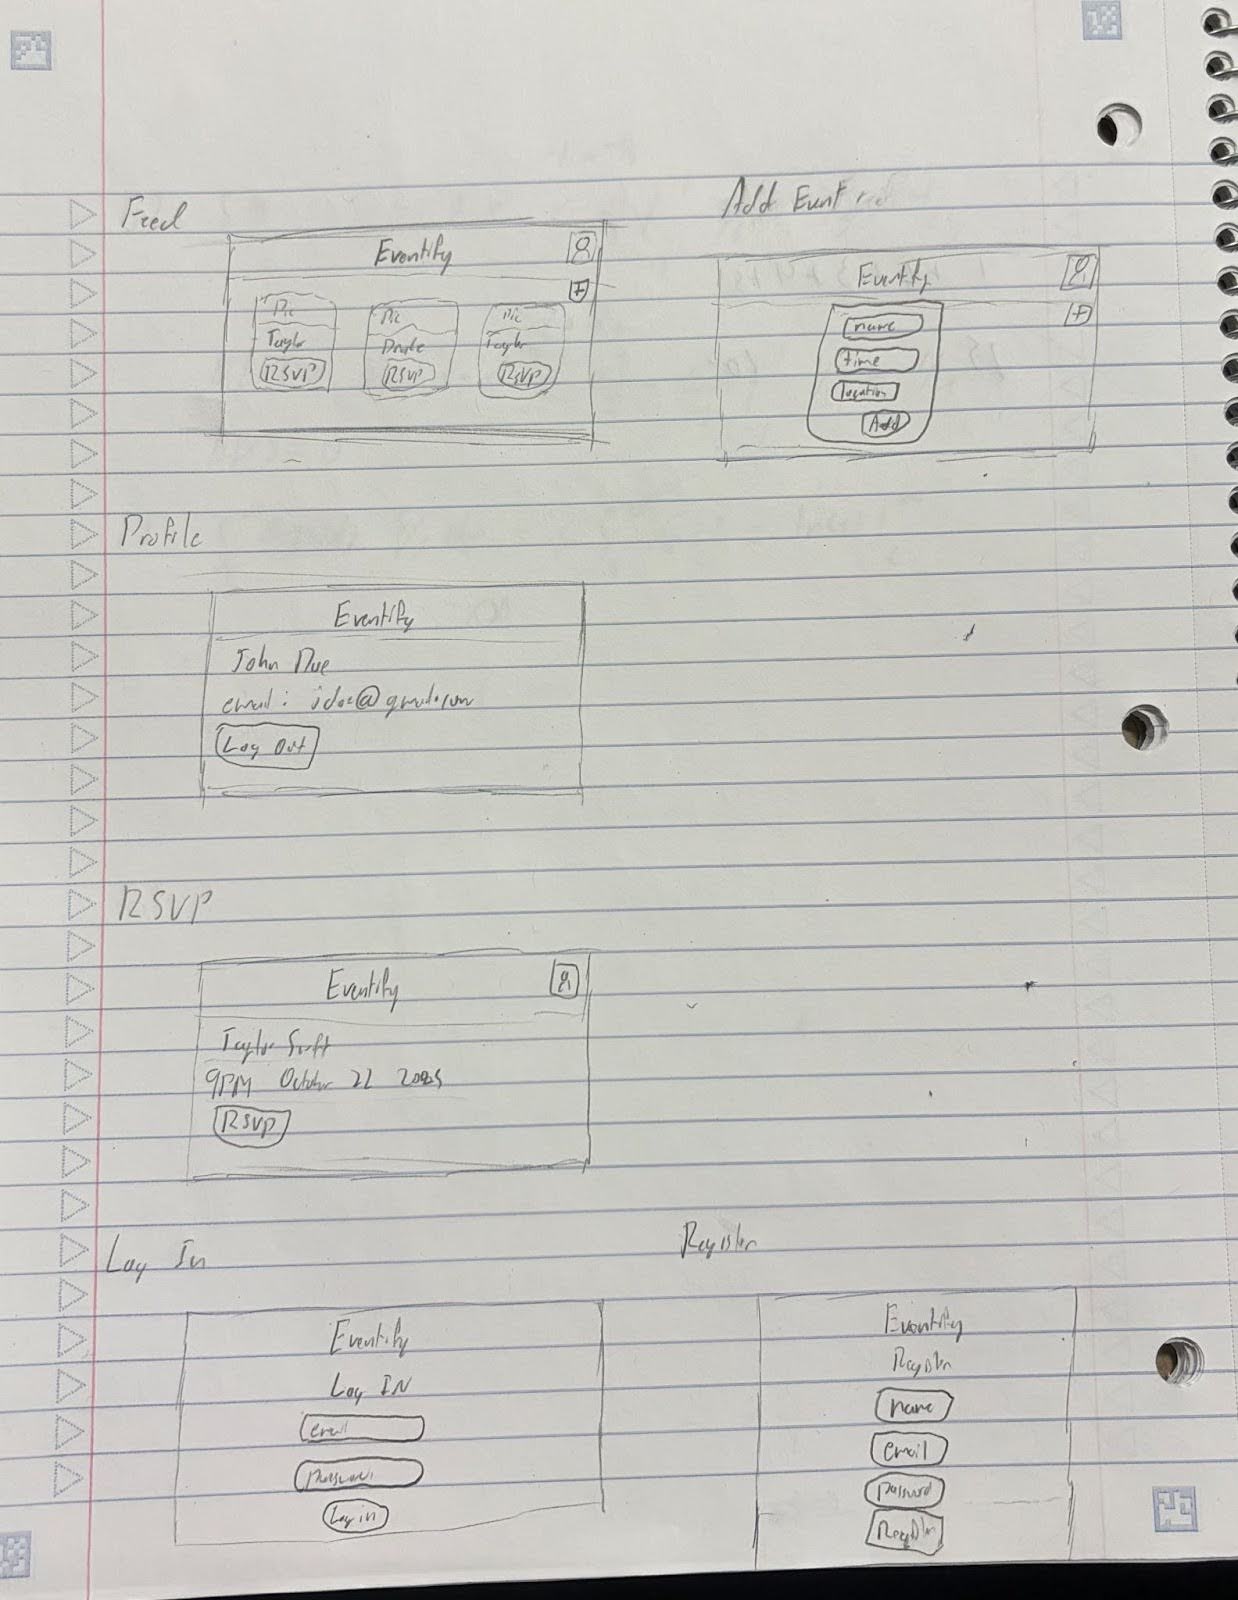 Feed
Eventify
+
Pic Pic Pic
Taylor Drake Taylor
RSVP RSVP RSVP
Add Event
Eventify
+
name
time
location
Add
Profile
Eventify
John Due
email: jdoe@gmail.com
Log Out
RSVP
Eventify
Taylor Swift
9PM October 22
RSVP
Log In
Eventify
Log IN
email
password
Log in
Register
Eventify
Register
name
email
password
Register